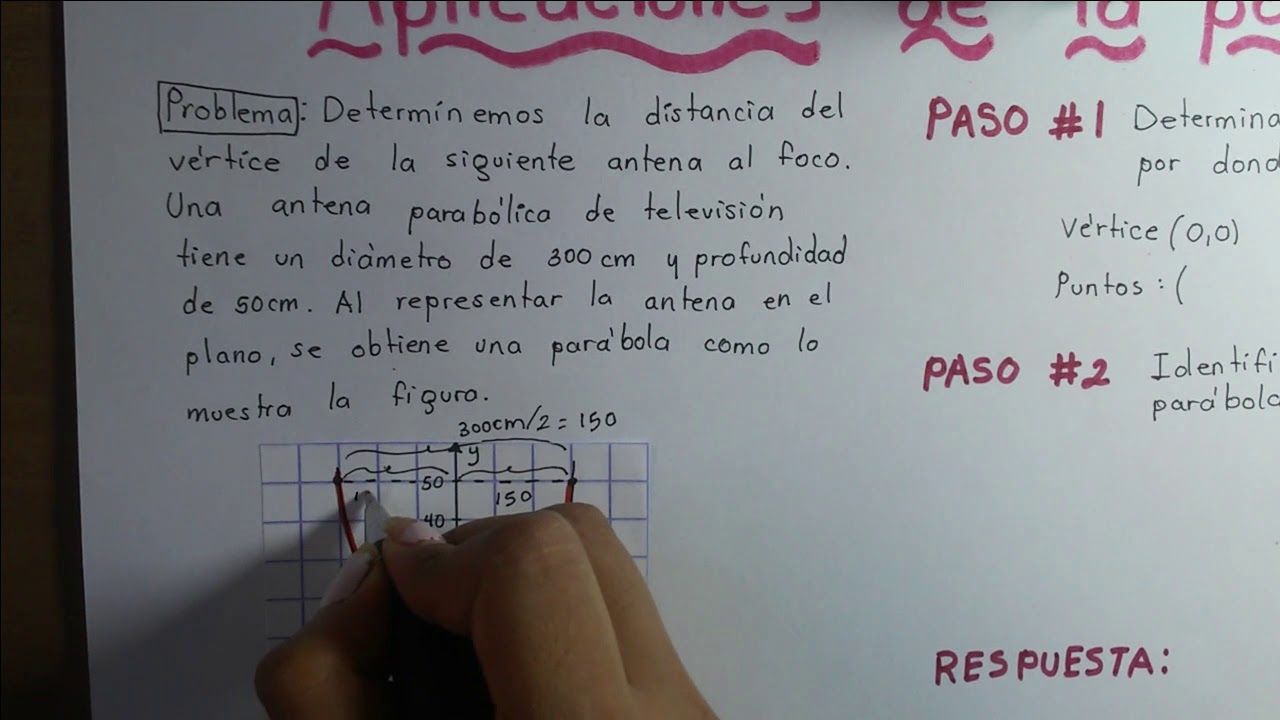 Aplicaciones de la pa
Problema: Determinemos la distancia del
vértice de la siguiente antena al foco.
Una antena parabólica de televisión
tiene un diámetro de 300 cm y profundidad
de 50cm. Al representar la antena en el
plano, se obtiene una parábola como lo
muestra la figura.
300cm/2 = 150
y
50
150
40
PASO #1 Determina
por dond
Vértice (0,0)
Puntos : (
PASO #2 Identifi
parábola
RESPUESTA: